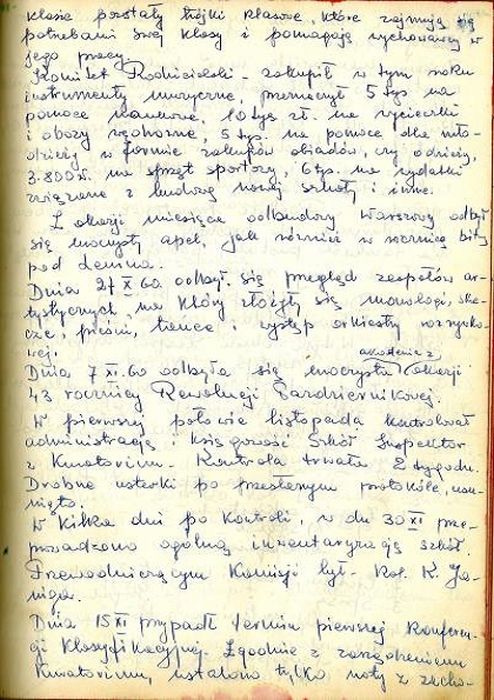 klasie powstały trójki klasowe, które zajmują się
potrzebami swej klasy i pomagają wychowawcy w
jego pracy.
Komitet Rodzicielski - zakupił w tym roku
instrumenty muzyczne, przeznaczył 5 tys na
pomoce naukowe, 10 tys zł. na wycieczki
i obozy wędrowne, 5 tys. na pomoce dla mło-
dzieży w formie zakupów obiadów, czy odzieży,
3.800 zł. na sprzęt sportowy, 6 tys. na wydatki
związane z budową nowej szkoły i inne.
Z okazji miesiąca odbudowy Warszawy odbył
się uroczysty apel, jak również w rocznicę bitwy
pod Lenino.
Dnia 27 X 60 odbył się przegląd zespołów ar-
tystycznych, na który złożyły się monologi, ske-
cze, pieśni, tańce i występ orkiestry rozrywko-
wej.
Dnia 7 XI. 60 odbyła się uroczysta akademia z okazji
43 rocznicy Rewolucji Październikowej.
W pierwszej połowie listopada kontrolował
administrację i księgowość Szkół Inspektor
z Kuratorium. Kontrola trwała 2 tygodn.
Drobne usterki po przesłanym protokóle, usu-
nięto.
W kilka dni po kontroli, w dn 30 XI prze-
prowadzono ogólną inwentaryzację szkół.
Przewodniczącym Komisji był - Kol. K. Ja-
niga.
Dnia 15 XI przypadł termin pierwszej konferen-
cji klasyfikacyjnej. Zgodnie z zarządzeniem
Kuratorium, ustalono tylko noty z zacho-